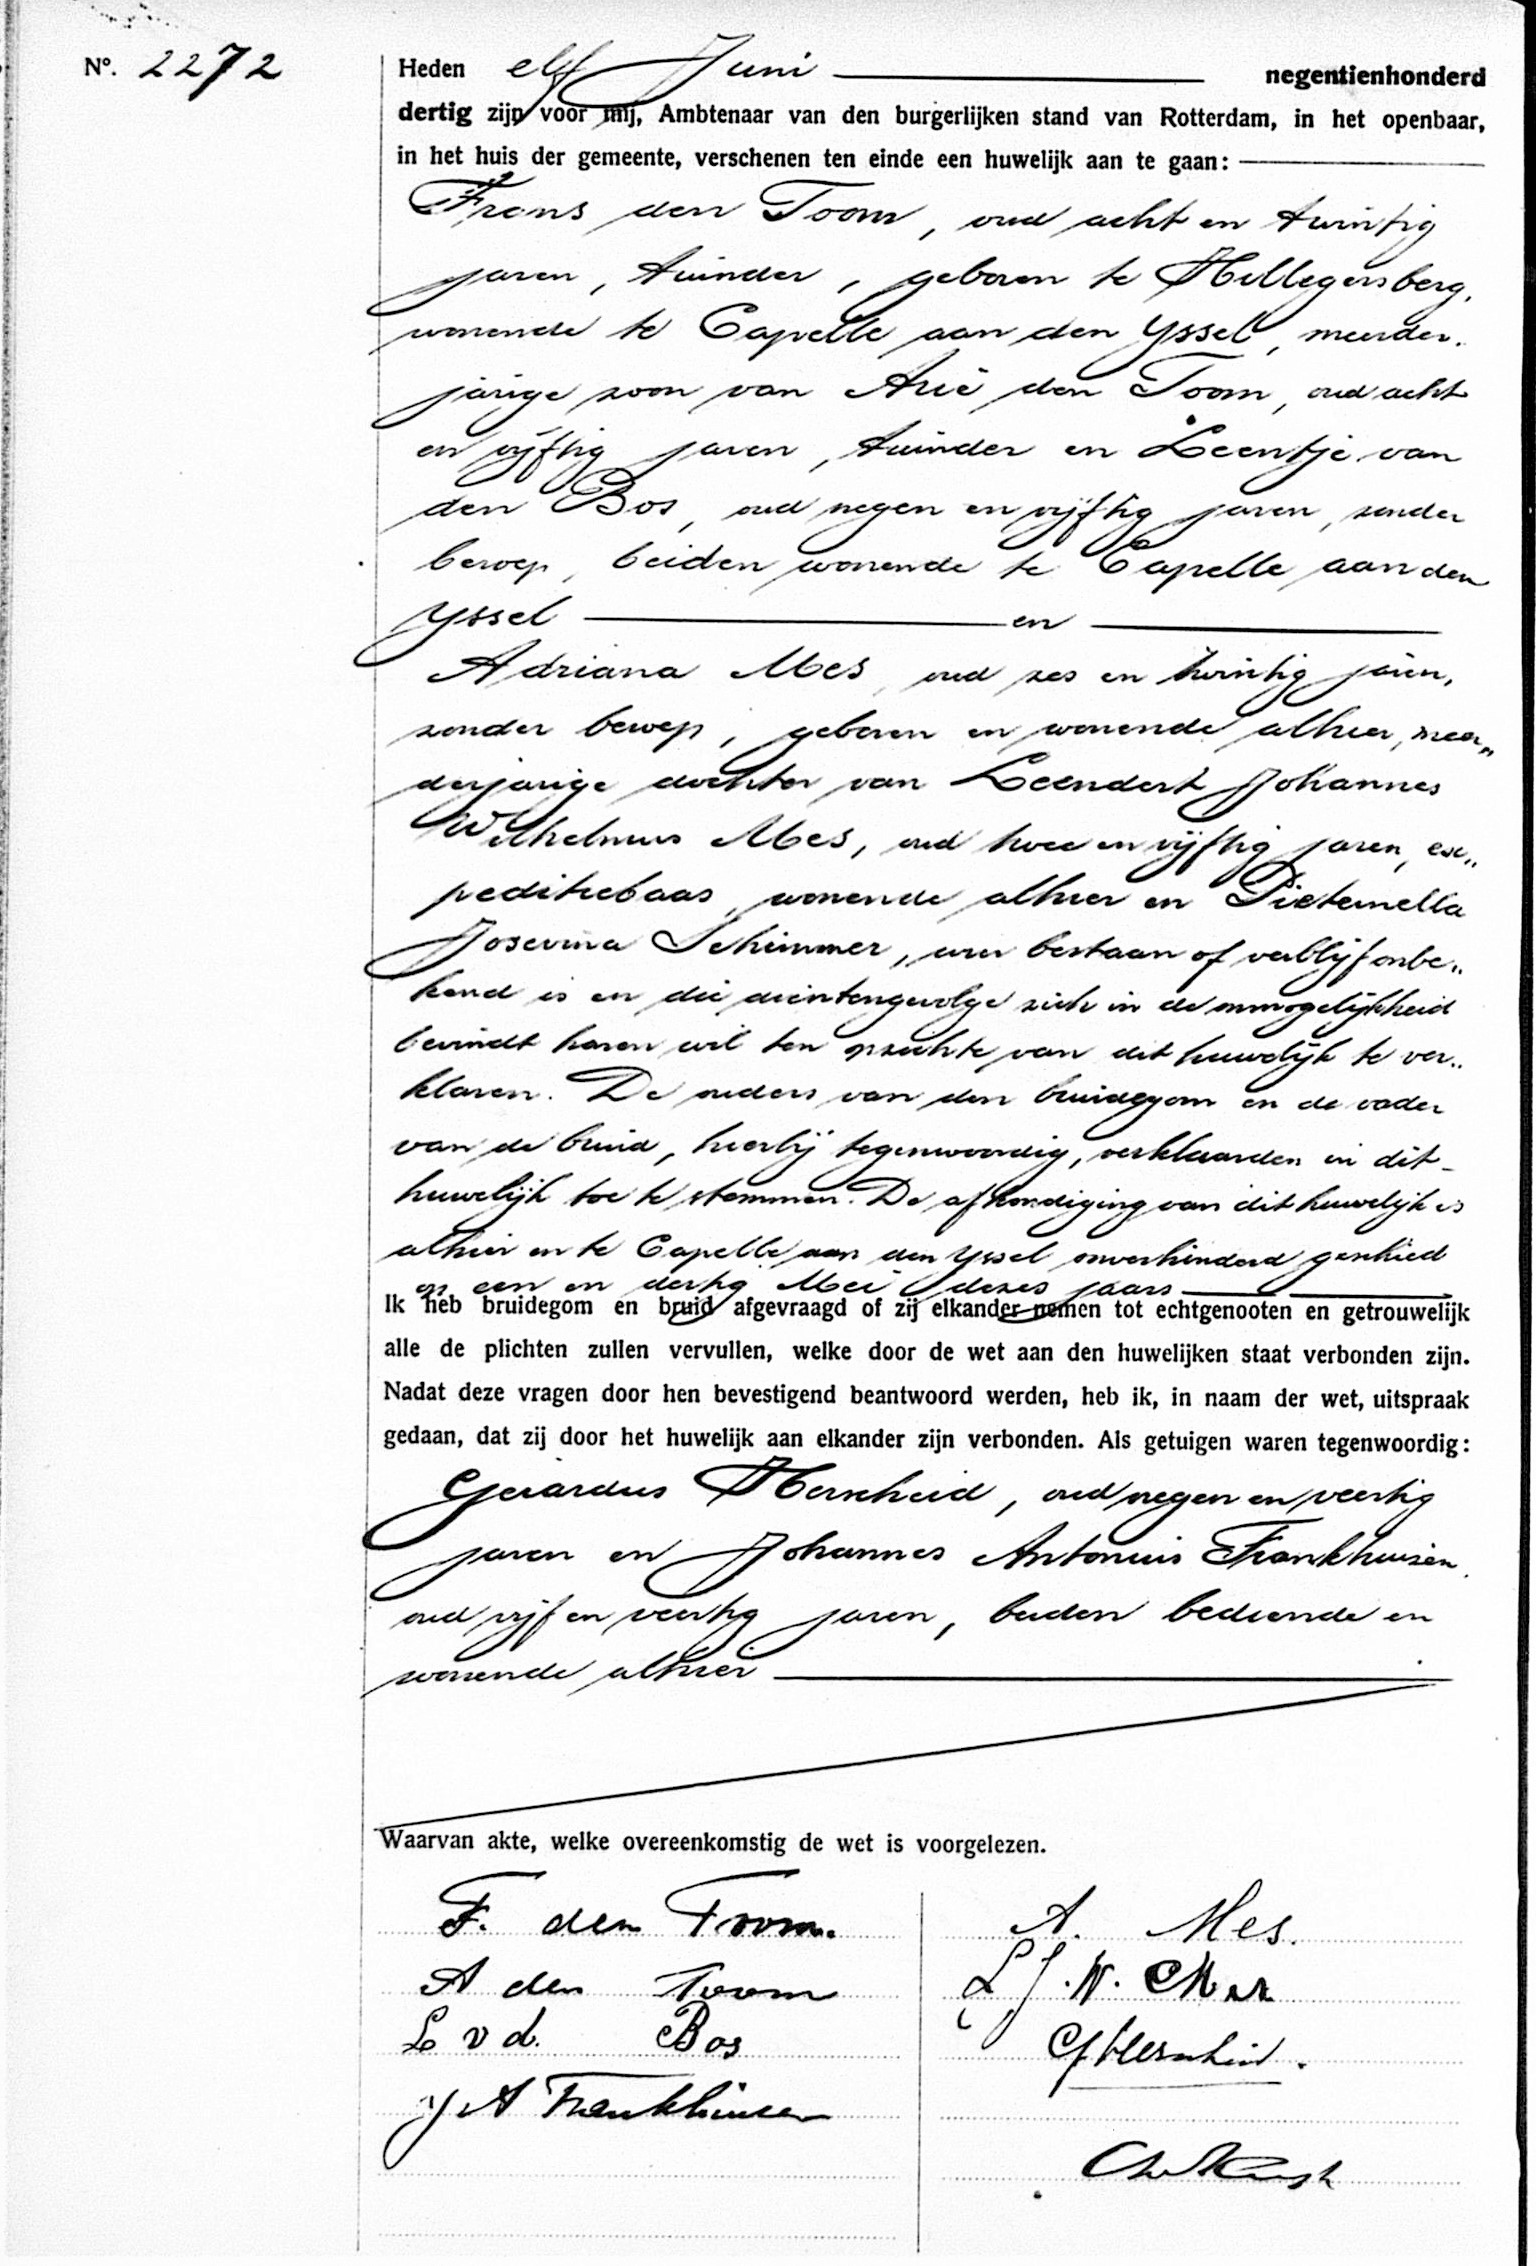 Nº. 2272
Heden elf Juni negentienhonderd
dertig zijn voor mij, Ambtenaar van den burgerlijken stand van Rotterdam, in het openbaar,
in het huis der gemeente, verschenen ten einde een huwelijk aan te gaan:
Frans den Toom, oud acht en twintig
jaren, tuinder, geboren te Hillegersberg,
wonende te Capelle aan den Yssel, meerder-
jarige zoon van Arie den Toom, oud acht
en vijftig jaren, tuinder en Leentje van
den Bos, oud negen en vijftig jaren, zonder
beroep, beiden wonende te Capelle aan den
Yssel en
Adriana Mes, oud zes en twintig jaren,
zonder beroep, geboren en wonende alhier, meer„
derjarige dochter van Leendert Johannes
Wilhelmus Mes, oud twee en vijftig jaren, ex„
peditiebaas, wonende alhier en Pieternella
Josevina Schimmer, wier bestaan of verblijf onbe„
kend is en die dientengevolge zich in de onmogelijkheid
bevindt haren wil ten opzichte van dit huwelijk te ver„
klaren. De ouders van den bruidegom en de vader
van de bruid, hierbij tegenwoordig, verklaarden in dit
huwelijk toe te stemmen. De afkondiging van dit huwelijk is
alhier en te Capelle aan den Yssel onverhinderd geschied
op een en dertig Mei dezes jaars
Ik heb bruidegom en bruid afgevraagd of zij elkander nemen tot echtgenooten en getrouwelijk
alle de plichten zullen vervullen, welke door de wet aan den huwelijken staat verbonden zijn.
Nadat deze vragen door hen bevestigend beantwoord werden, heb ik, in naam der wet, uitspraak
gedaan, dat zij door het huwelijk aan elkander zijn verbonden. Als getuigen waren tegenwoordig:
Gerardus Herscheid, oud negen en veertig
jaren en Johannes Antonius Frankhuisen,
oud vijf en veertig jaren, beiden bediende en
wonende alhier
Waarvan akte, welke overeenkomstig de wet is voorgelezen.
F. den Toom.
A. Mes.
A den Toom
L J. W. Mes
L v d. Bos
G Herscheid.
J A Frankhuisen